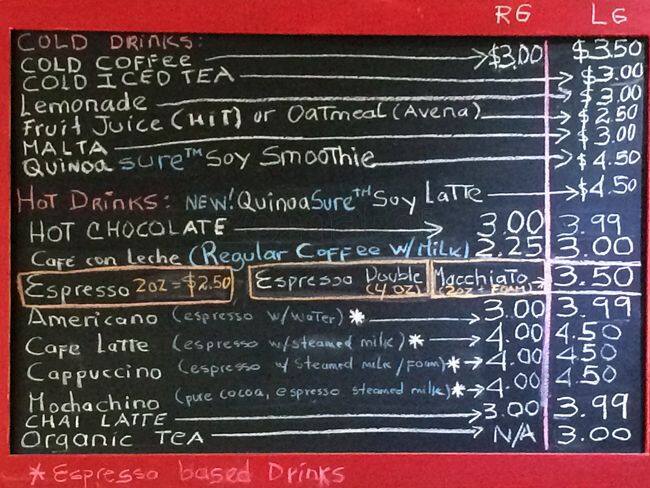 RG LG
COLD DRINKS:
COLD COFFEE $3.00 $3.50
COLD ICED TEA $3.00
Lemonade $3.00
Fruit Juice (HIT) or Oatmeal (Avena) $2.50
MALTA $3.00
Quinoa sure™ Soy Smoothie $4.50
HOT Drinks: NEW! QuinoaSure™ Soy Latte $4.50
HOT CHOCOLATE 3.00 3.99
Café con Leche (Regular Coffee w/Milk) 2.25 3.00
Espresso 2oz = $2.50 Espresso Double (4 oz) Macchiato (2oz = FOAM) 3.50
Americano (espresso w/water)* 3.00 3.99
Cafe Latte (espresso w/steamed milk)* 4.00 4.50
Cappuccino (espresso w/ Steamed milk/foam)* 4.00 4.50
Mochachino (pure cocoa, espresso steamed milk)* 4.00 4.50
CHAI LATTE 3.00 3.99
Organic Tea N/A 3.00
* Espresso based Drinks